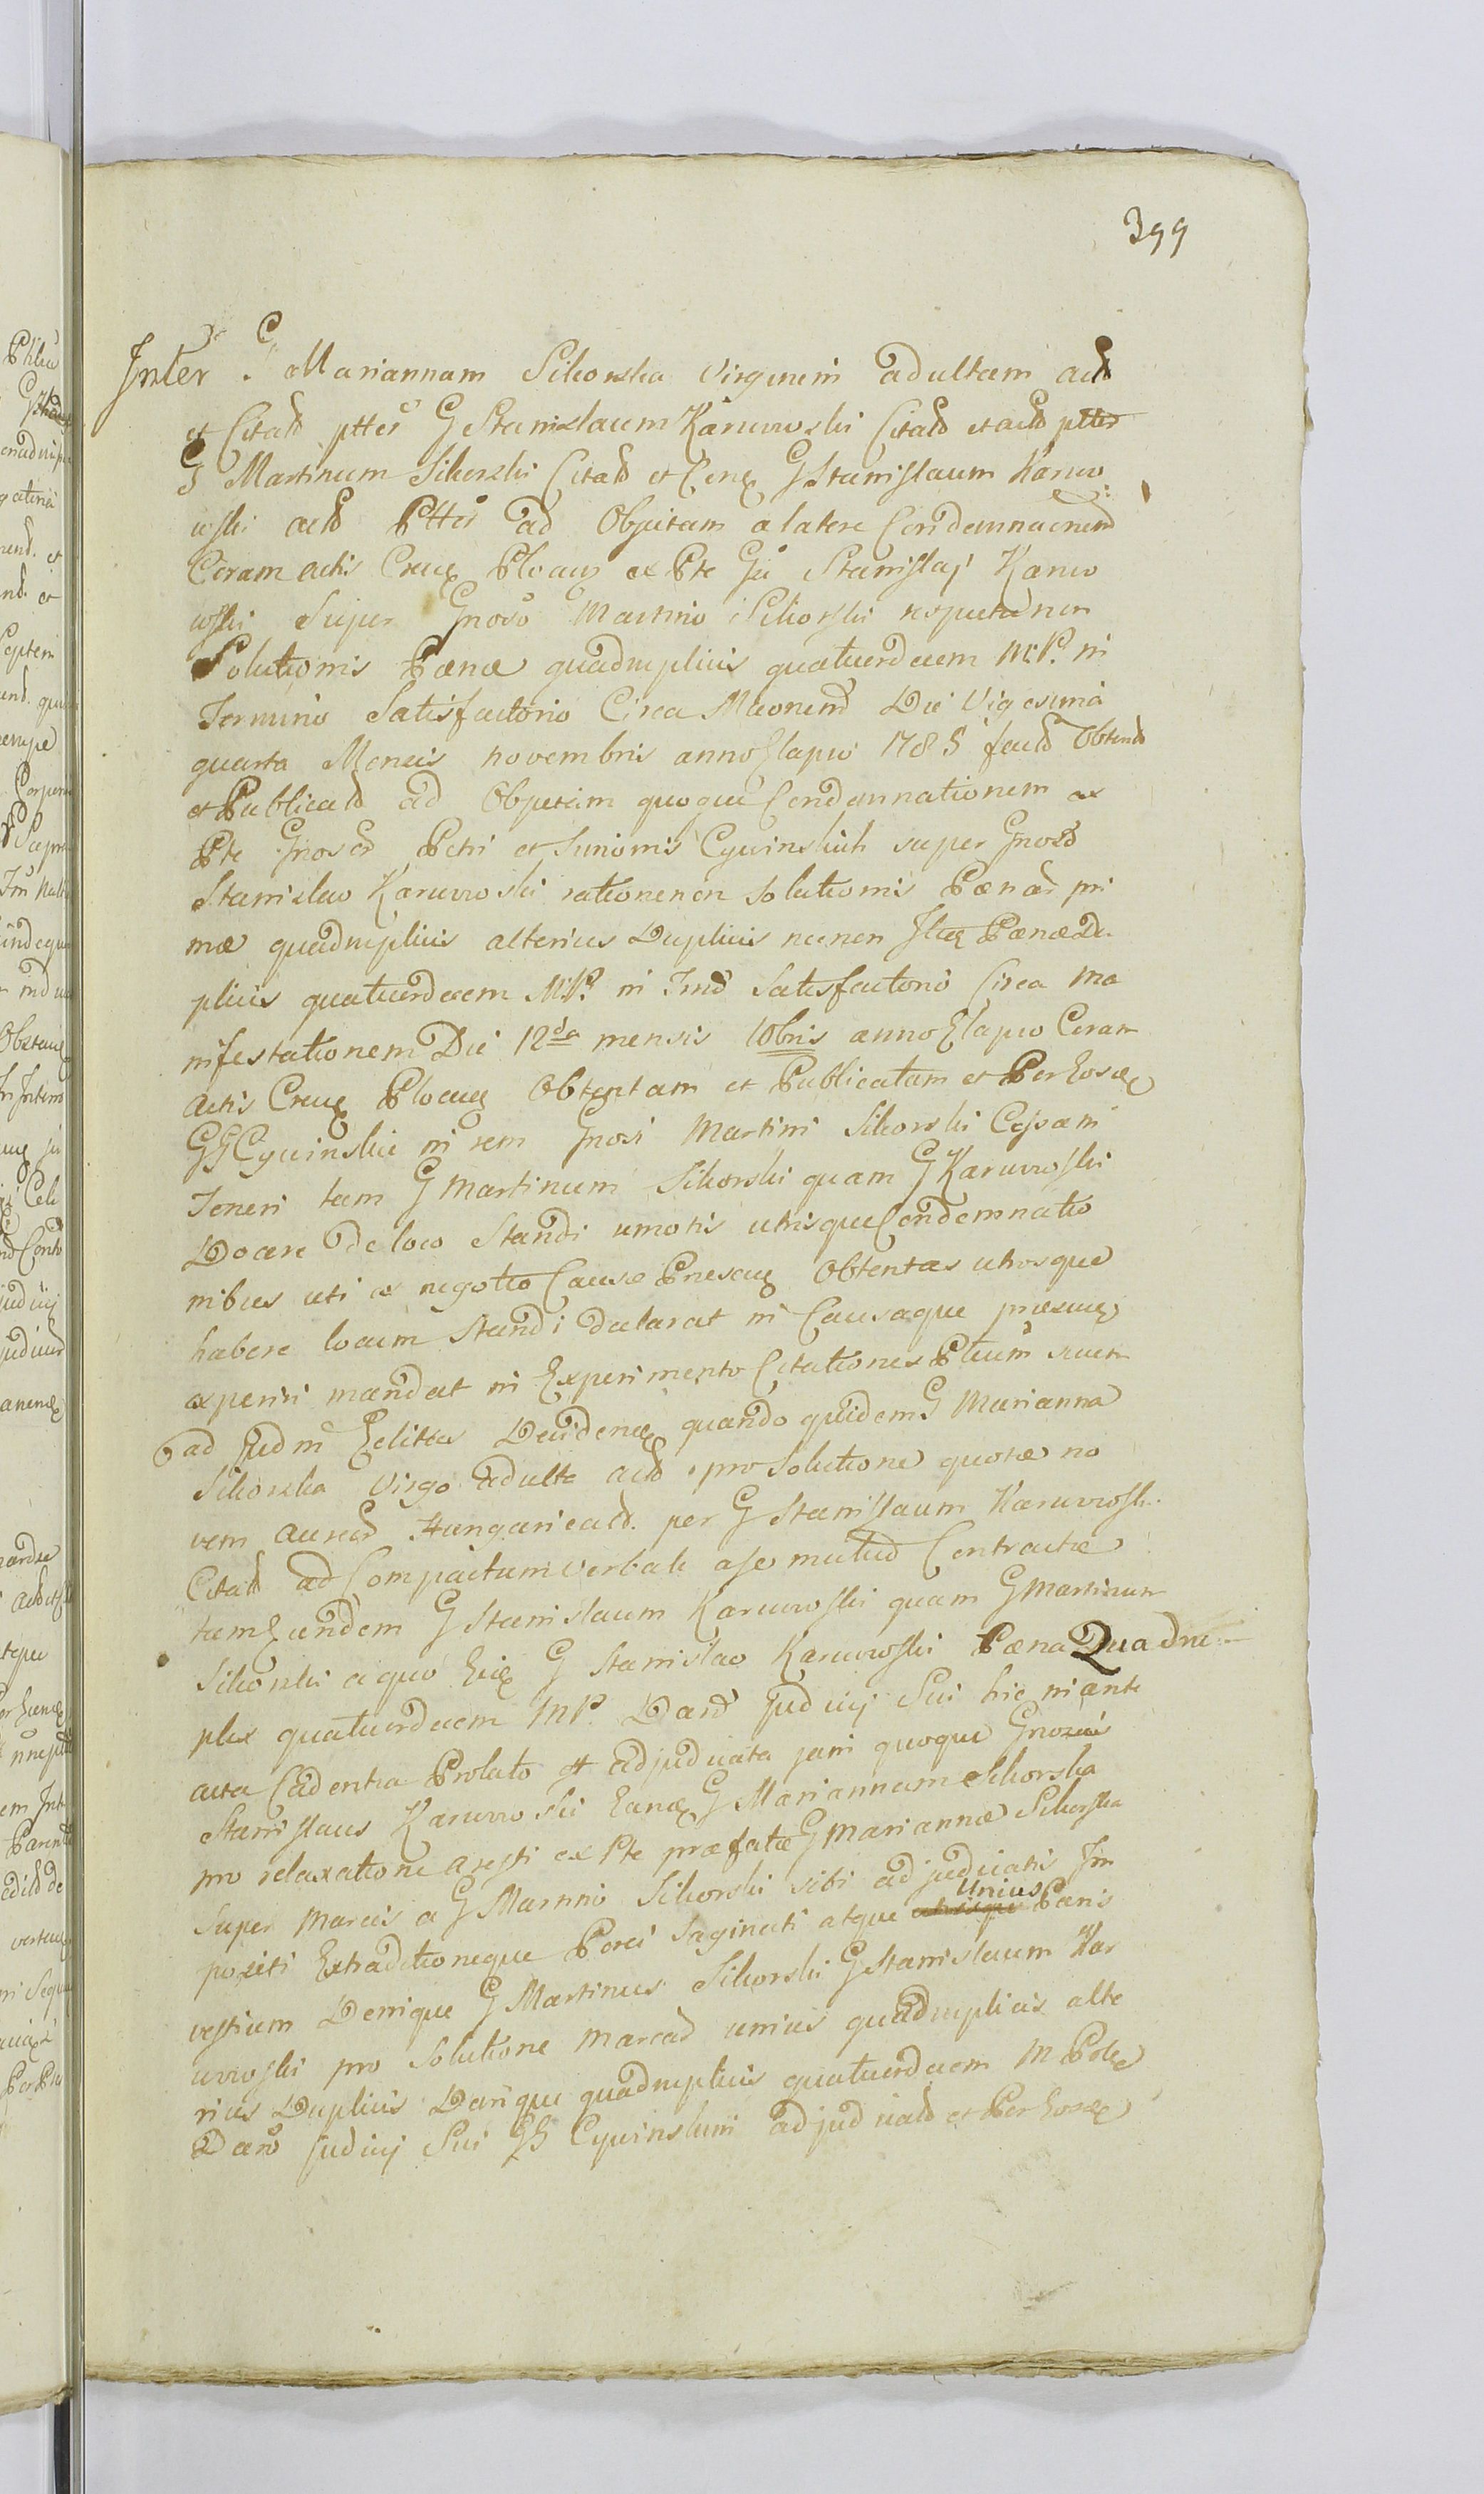 399
Inter G. Mariannam Sikorska Virginem adultam act
et Citat pttes G Stanislaum Karwowski Citat et act pttes
G Martinum Sikorski Citat et G Stanislaum Karwo
wski act Pttes ad Objectam a latere Condemnaonem
Coram actis Plocen ex Pte Gsi Stanislaj Karwo
wski Super Gnoso Martino Sikorski respectu non
Solutionis Pænæ quadruplicis quatuordecem M.P. in
Termino Satisfactorio Circa Die Vigesima
quarta Mensis novembris anno Elapso 1785 fact Obtent
et Publicat ad Objectam quoque Condemnationem ex
Pte Petri et Cywinskich super Gnoso
Stanislao Karwowski ratione non Solutionis Pænar pri
mæ quadruplicis alterius Duplicis necnon Pænæ Du
plicis quatuordecem M.P. in Tno Satisfactorio Circa Ma
nifestationem Die 12da mensis 10bris anno Elapso Coram
actis Plocen Obtentam et Publicatam et Per Eosd
GG Cywinskie in rem Gnosi Martini Sikorski Cessam
Teneri tam G Martinum Sikorski quam G Karwowski
Docere de loco Standi amotis utrisque Condemnatio
nibus uti ex negotio Causæ Obtentas utrosque
habere locum Standi declarat in Causaque
experiri mandat in Experimento Citationes Ptium
ad Judm Relictas quando quidem G Marianna
Sikorska Virgo adulta act pro Solutione quotæ no
vem aureor Hungaricald. per G Stanislaum Karwowski
Citat ad Compactum verbale a se mutuo Contractæ
tam Eundem G Stanislaum Karwowski quam G Martinum
Sikorski a quo G Stanislao Karwowski Pæna Quadru
plex quatuordecem M.P. Judicij Sui hic in ante
acta Cadentia Prolato et adjudicata jam quoque
Stanislaus Karwowski G Mariannam Sikorska
pro relaxatione aresti ex Pte præfatæ G Mariannæ Sikorska
Super Marcis a G Martino Sikorski sibi adjudicatis Im
positi Extraditioneque Porci Saginati atque Unius Paris
vestium Denique G Martinus Sikorski G Stanislaum Kar
wowski pro Solutione Marcar unius quadruplicis alte
rius Duplicis quadruplicis quatuordecem M
Judicij Sui GG Cywinskim adjudicat et Per Eosd